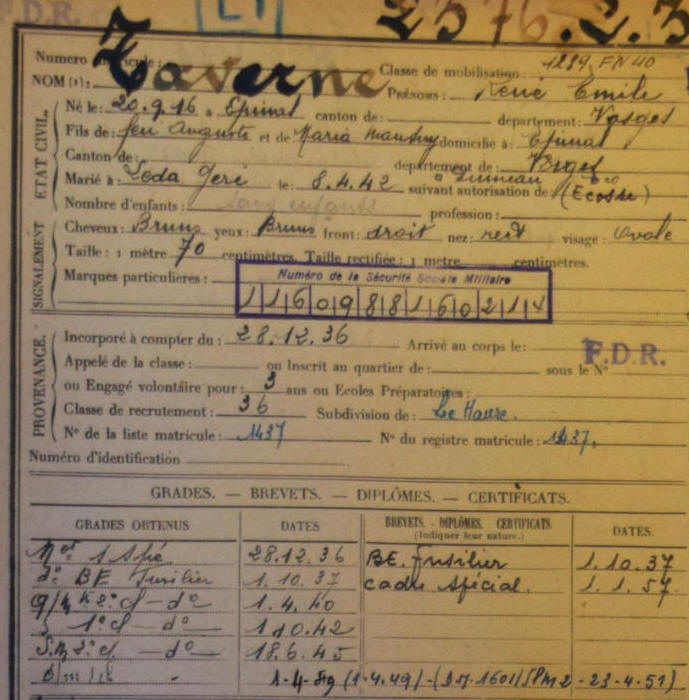 F.D.R. LI 2376.2.3
Numero matricule: Classe de mobilisation: 1239.FN40
NOM (1): Taverne PRÉNOMS: René Emile
ETAT CIVIL.
Né le: 20.9.16 à Epinal canton de: departement: Vosges
Fils de: feu Auguste et de Maria domicilié à: Epinal
Canton de: departement de: Vosges
Marié à: Leda le: 8.4.42 suivant autorisation de (Ecosse)
Nombre d'enfants: sans enfants profession:
SIGNALEMENT
Cheveux: Bruns yeux: Bruns front: droit nez: rect visage: Ovale
Taille: 1 mètre 70 centimètres. Taille rectifiée: 1 metre centimètres.
Marques particulières: Numéro de la Sécurité Sociale Militaire
1 1 6 0 9 8 8 1 6 0 2 1 4
PROVENANCE.
Incorporé à compter du: 28.12.36 Arrivé au corps le: F.D.R.
Appelé de la classe: ou Inscrit au quartier de: sous le N°
ou Engagé volontaire pour: 3 ans ou Ecoles Préparatoires:
Classe de recrutement: 36 Subdivision de: Le Havre.
N° de la liste matricule: 1437 N° du registre matricule: 1437,
Numéro d'identification
GRADES. — BREVETS. — DIPLÔMES. — CERTIFICATS.
GRADES OBTENUS DATES BREVETS. - DIPLÔMES. CERTIFICATS. DATES.
(Indiquer leur nature.)
Mot 1 Spé 28.12.36 BE. Fusilier 1.10.37
d° BE Fusilier 1.10.37 cadre spécial. 1.1.57
q/m 2e cl - d° 1.4.40
1e cl - d° 1.10.42
S.M 2e cl - d° 18.6.45
1-4-49 (1.4.49)-(D.M.1601/SPM2-23-4.51)